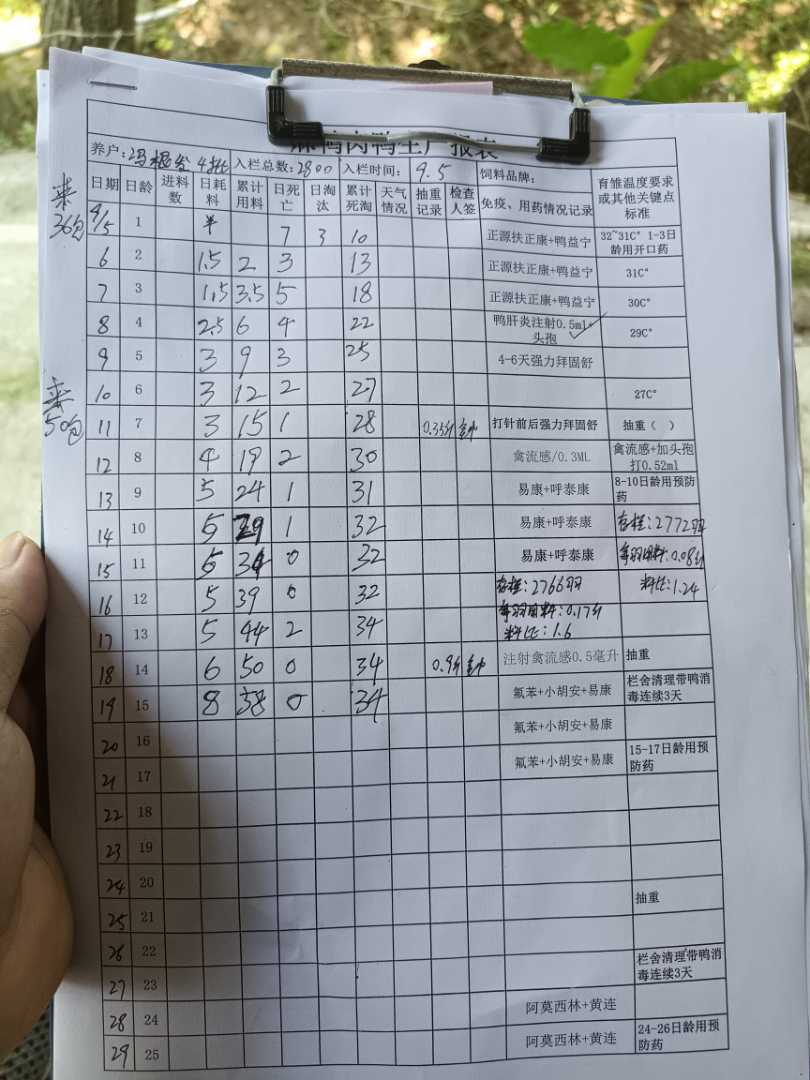 麻鸭肉鸭生产报表
养户: 4批 入栏总数:2800 入栏时间: 9.5 饲料品牌:
日期 日龄 进料数 日耗料 累计用料 日死亡 日淘汰 累计死淘 天气情况 抽重记录 检查人签 免疫、用药情况记录 育雏温度要求或其他关键点标准
来36包
9/5 1 7 3 10 正源扶正康+鸭益宁 32~31C° 1-3日龄用开口药
6 2 1.5 2 3 13 正源扶正康+鸭益宁 31C°
7 3 1.5 3.5 5 18 正源扶正康+鸭益宁 30C°
8 4 2.5 6 4 22 鸭肝炎注射0.5ml+头孢 29C°
9 5 3 9 3 25 4-6天强力拜固舒
10 6 3 12 2 27 27C°
来50包
11 7 3 15 1 28 0.35斤 打针前后强力拜固舒 抽重（ ）
12 8 4 19 2 30 禽流感/0.3ML 禽流感+加头孢打0.52ml
13 9 5 24 1 31 易康+呼泰康 8-10日龄用预防药
14 10 5 29 1 32 易康+呼泰康 存栏:2772羽
15 11 5 34 0 32 易康+呼泰康 0.08斤
16 12 5 39 0 32 存栏:2766羽 料比:1.24
17 13 5 44 2 34 0.17斤
料比:1.6
18 14 6 50 0 34 0.9斤 注射禽流感0.5毫升 抽重
19 15 8 58 0 34 氟苯+小胡安+易康 栏舍清理带鸭消毒连续3天
20 16 氟苯+小胡安+易康
21 17 氟苯+小胡安+易康 15-17日龄用预防药
22 18
23 19
24 20
25 21 抽重
26 22
27 23 栏舍清理带鸭消毒连续3天
28 24 阿莫西林+黄连
29 25 阿莫西林+黄连 24-26日龄用预防药